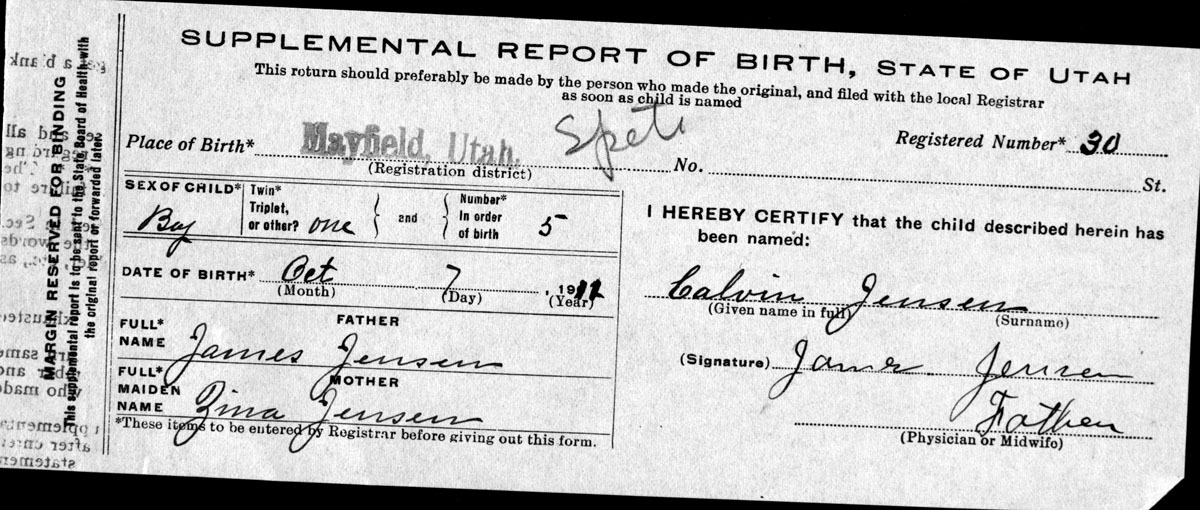 SUPPLEMENTAL REPORT OF BIRTH, STATE OF UTAH
This return should preferably be made by the person who made the original, and filed with the local Registrar
as soon as child is named
Place of Birth* Mayfield, Utah. No. St.
(Registration district)
Registered Number* 30
SEX OF CHILD* Boy
Twin* Triplet, or other? one
and
Number* In order of birth 5
DATE OF BIRTH* Oct 7, 1911
(Month) (Day) (Year)
FATHER
FULL* NAME James Jensen
MOTHER
FULL* MAIDEN NAME Zina Jensen
*These items to be entered by Registrar before giving out this form.
I HEREBY CERTIFY that the child described herein has
been named:
Calvin Jensen
(Given name in full) (Surname)
(Signature) James Jensen
Father
(Physician or Midwife)
MARGIN RESERVED FOR BINDING
This supplemental report is to be sent to the State Board of Health with
the original report or forwarded later.